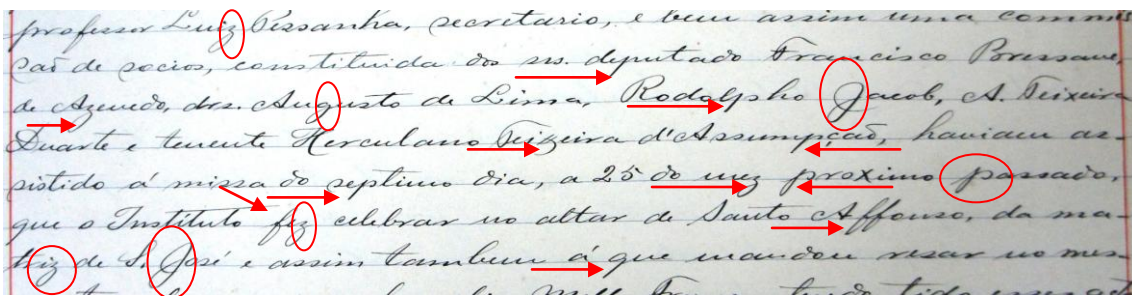 professor Luiz Pessanha, secretario, e bem assim uma commis
são de socios, constituida dos srs. deputado Francisco Bressane,
de Azevedo, drs. Augusto de Lima, Rodolpho Jacob, A. Teixeira
Duarte e tenente Herculano Teixeira d'Assumpção, haviam as-
sistido á missa do septimo dia, a 25 do mez proximo passado,
que o Instituto fez celebrar no altar de Santo Affonso, da ma-
triz de S. José e assim tambem á que mandou resar no mes-